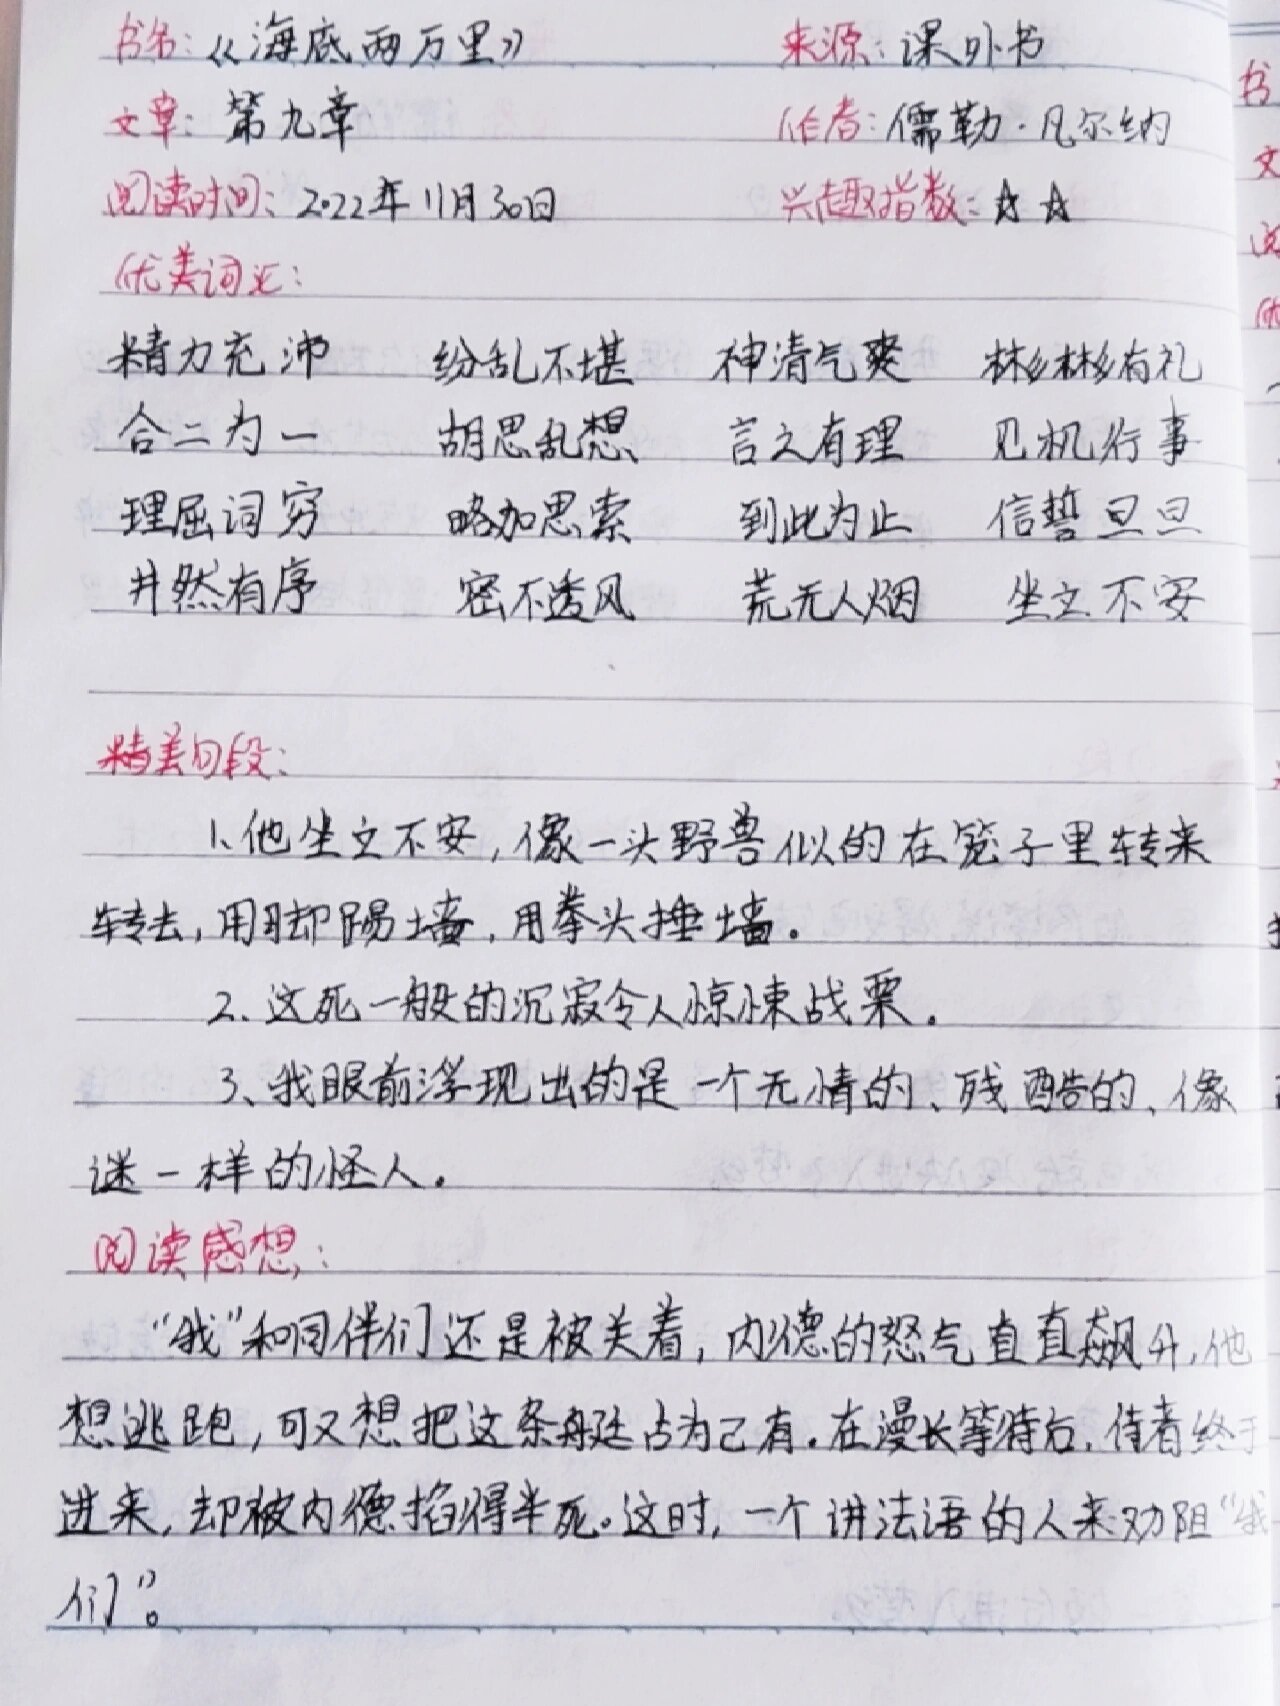 书名：《海底两万里》 来源：课外书
文章：第九章 作者：儒勒·凡尔纳
阅读时间：2022年11月30日 兴趣指数：☆☆
优美词汇：
精力充沛 纷乱不堪 神清气爽 彬彬有礼
合二为一 胡思乱想 言之有理 见机行事
理屈词穷 略加思索 到此为止 信誓旦旦
井然有序 密不透风 荒无人烟 坐立不安
精美句段：
1、他坐立不安，像一头野兽似的在笼子里转来
转去，用脚踢墙，用拳头捶墙。
2、这死一般的沉寂令人惊悚战栗。
3、我眼前浮现出的是一个无情的、残酷的、像
谜一样的怪人。
阅读感想：
“我”和同伴们还是被关着，内德的怒气直直飙升，他
想逃跑，可又想把这条舰艇占为己有。在漫长等待后，侍者终于
进来，却被内德掐得半死。这时，一个讲法语的人来劝阻“我
们”。
书
文
阅
优